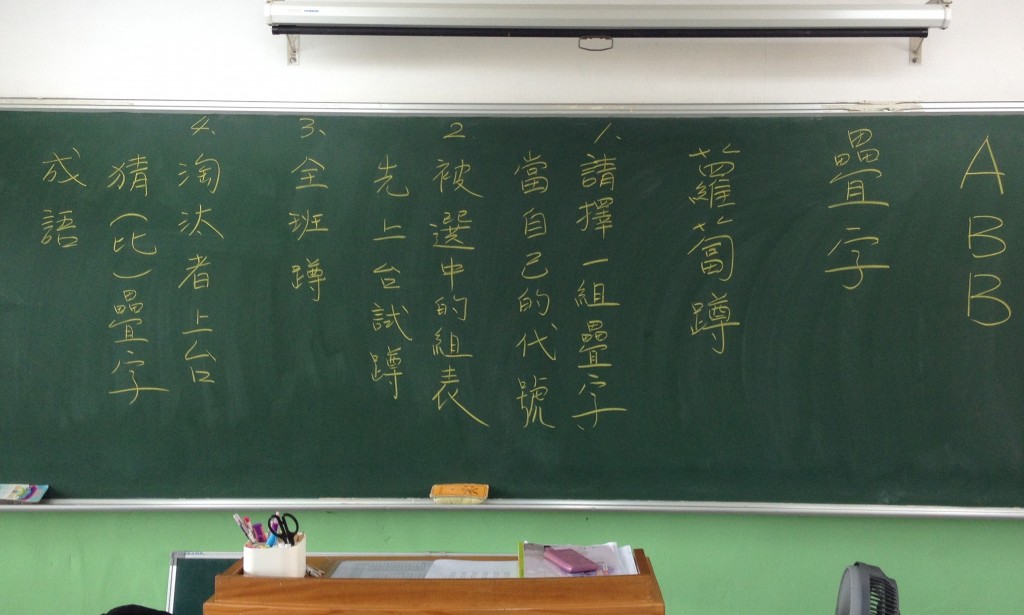 ABB
疊字
蘿蔔蹲
1、請擇一組疊字,
當自己的代號
2、被選中的組表
先上台試蹲
3、全班蹲
4、淘汰者上台
猜(比)疊字
成語